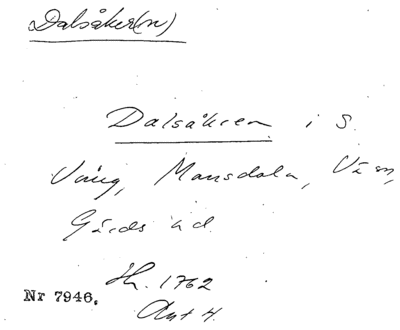 Dalsåker(n)
Dalsåkern i S.
Vång, Mansdala, Vå m,
Gärds hd.
Hh. 1762
Akt 4.
Nr 7946.